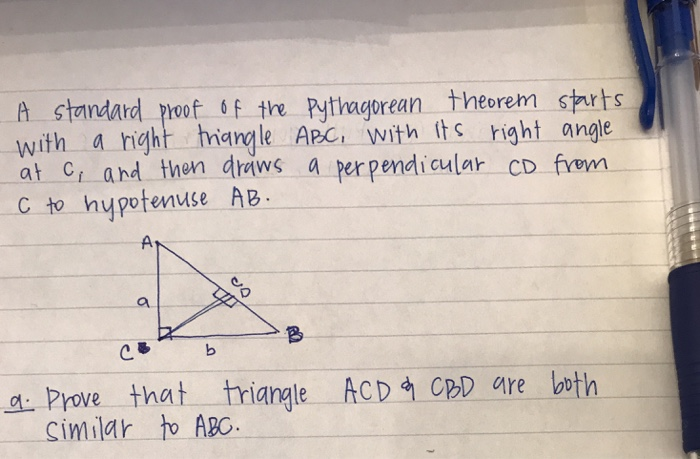 A standard proof of the Pythagorean theorem starts
with a right triangle ABC, with its right angle
at C, and then draws a perpendicular CD from
C to hypotenuse AB.
A
C
D
a
B
C
b
a. Prove that triangle ACD & CBD are both
similar to ABC.